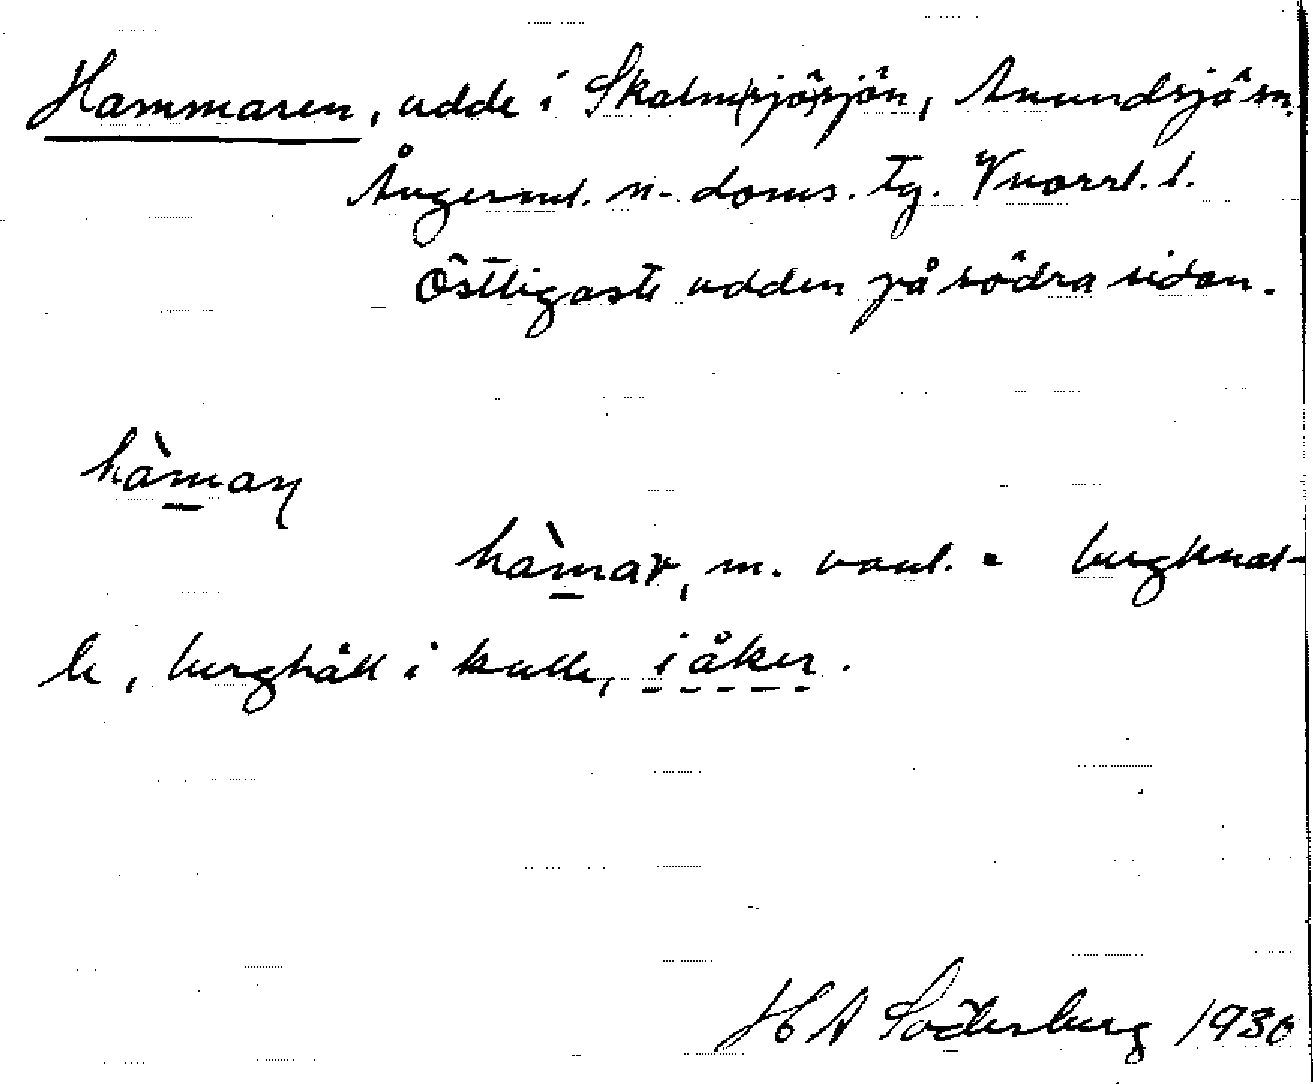 Hammaren, udde i Skalm(sjö)sjön, Anundsjö sn.
Ångerml. n. doms. tg. Vnorrl. l.
Östligaste udden på södra sidan.
hàman
hàmar, m. vanl. = bergknal-
le, berghäll i kulle, i åker.
H A Söderberg 1930